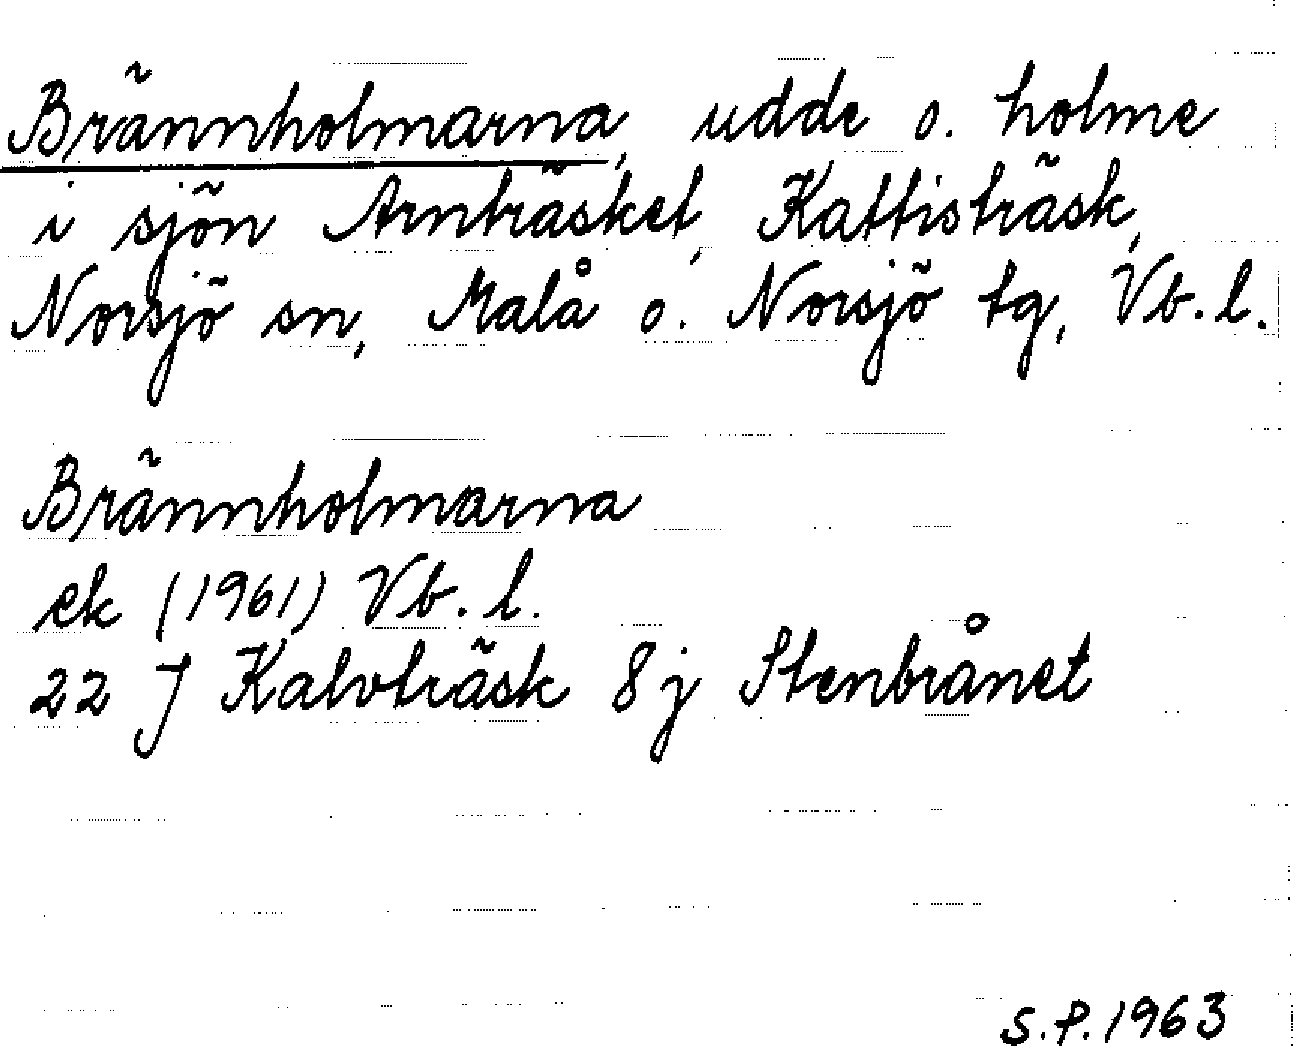 Brännholmarna, udde o. holme
i sjön Arnträsket, Kattisträsk,
Norsjö sn, Malå o. Norsjö tg, Vb. l.
Brännholmarna
ek (1961) Vb. l.
22 J Kalvträsk 8j Stenbrånet
S.P. 1963